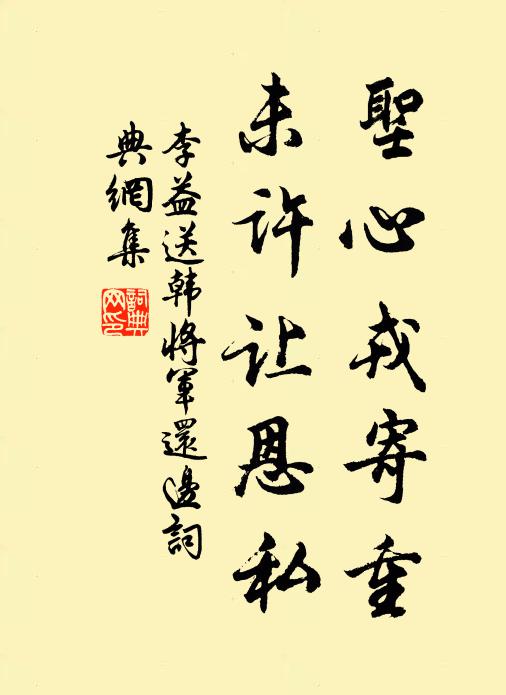 聖心戎寄重
未许让恩私
李益送韩將軍還邊詞
典網集
詞典
网印